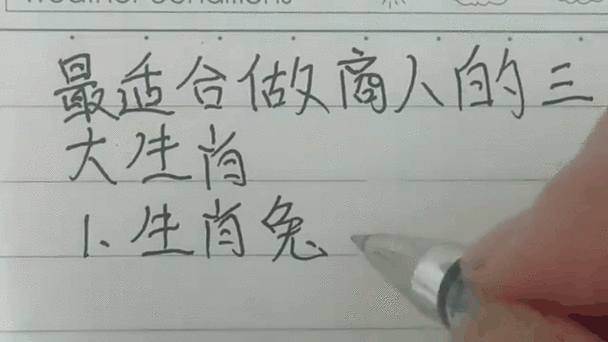 weather conditions
最适合做商人的三
大生肖
1、生肖兔